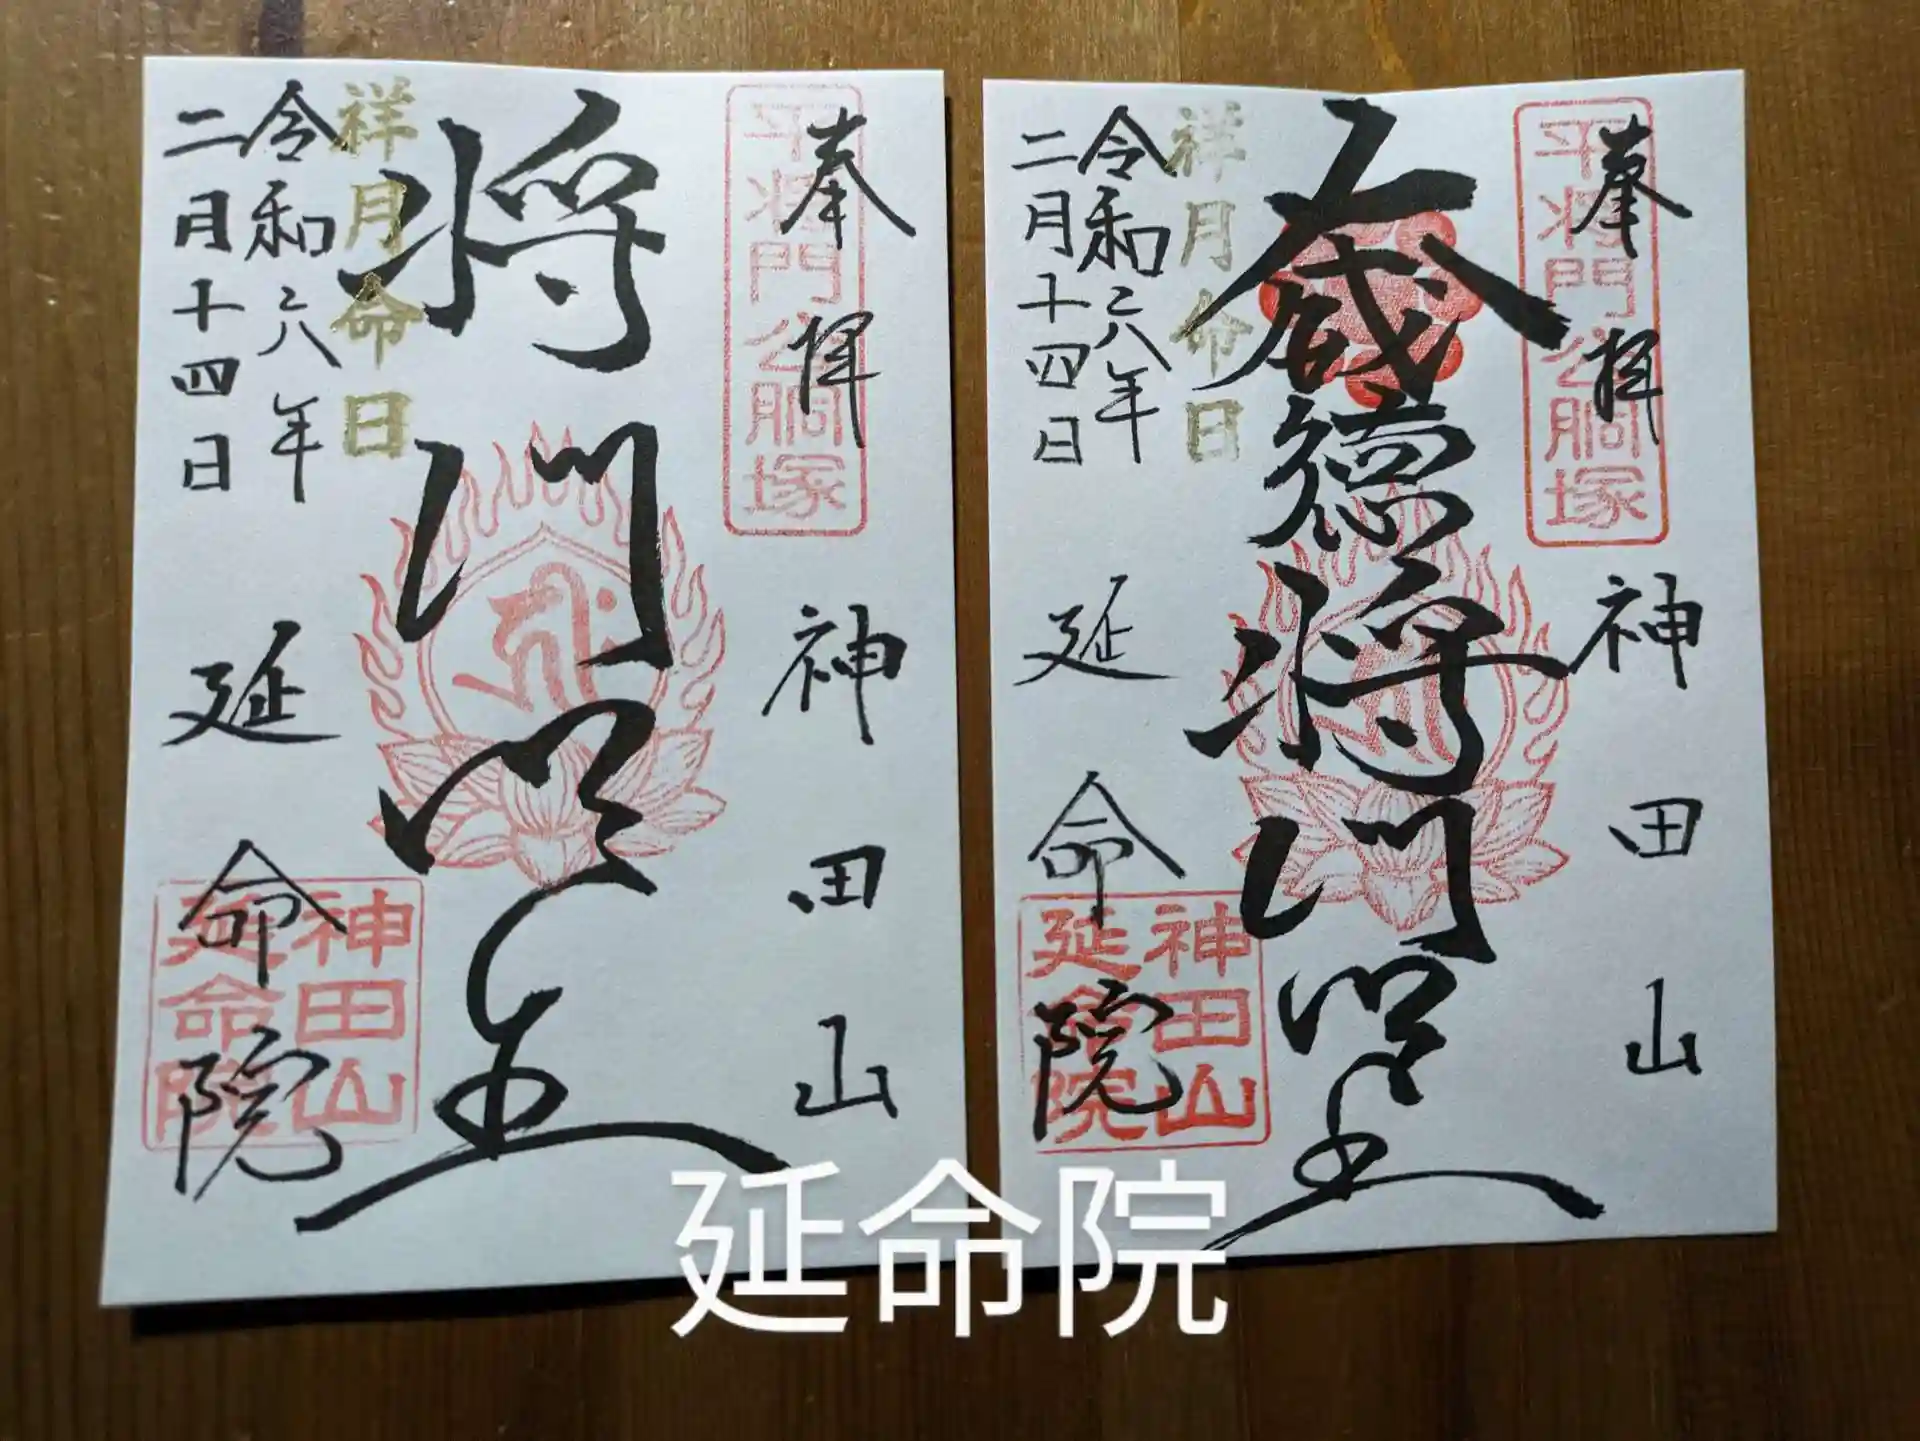 奉拝
平将門公胴塚
神田山
将門明王
祥月命日
令和六年
二月十四日
延命院
神田山
延命院
奉拝
平将門公胴塚
神田山
威徳将門明王
祥月命日
令和六年
二月十四日
延命院
神田山
延命院
延命院